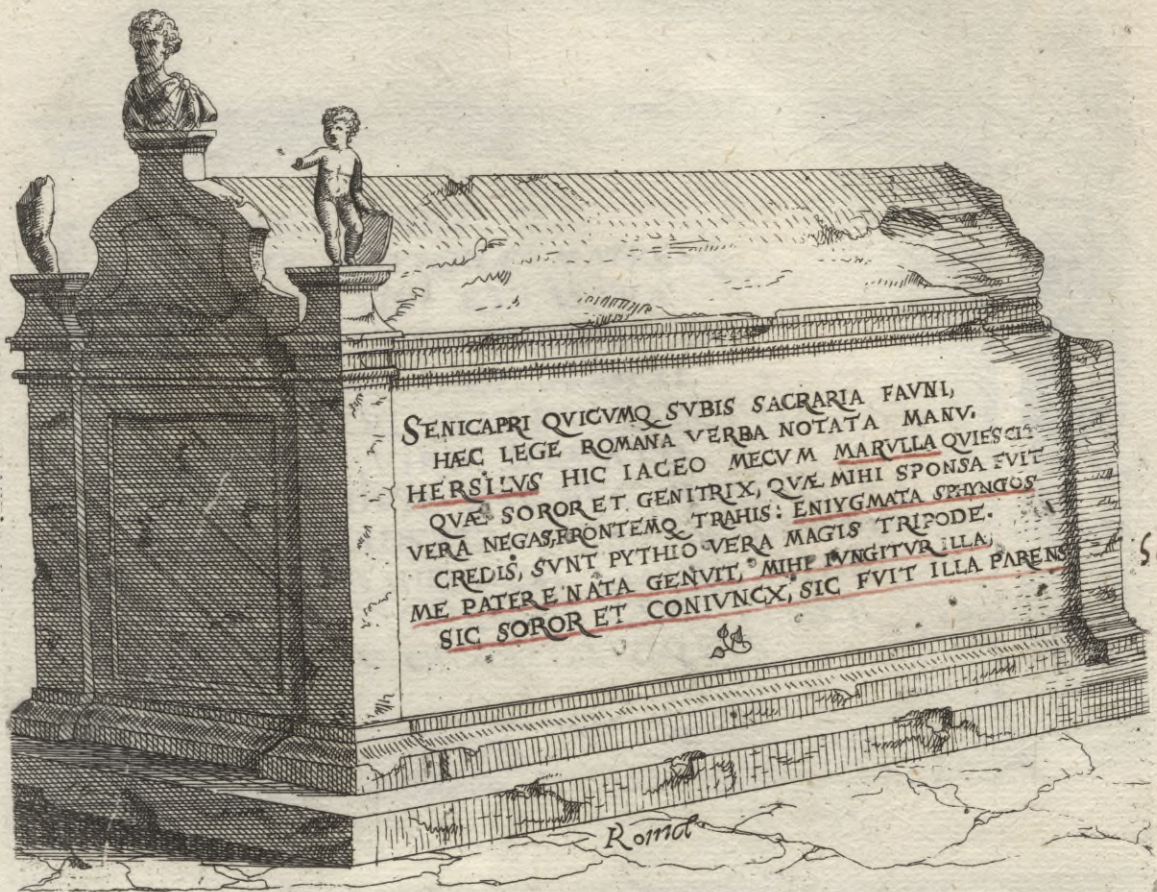 SENICAPRI QVICVMQ SVBIS SACRARIA FAVNI,
HÆC LEGE ROMANA VERBA NOTATA MANV.
HERSILVS HIC IACEO MECVM MARVLLA QVIESCIT
QVÆ SOROR ET GENITRIX, QVÆ MIHI SPONSA FVIT
VERA NEGAS, FRONTEMQ TRAHIS: ENIYGMATA SPHYNGOS
CREDIS, SVNT PYTHIO VERA MAGIS TRIPODE.
ME PATER E NATA GENVIT, MIHI IVNGITVR ILLA,
SIC SOROR ET CONIVNCX, SIC FVIT ILLA PARENS
Romæ